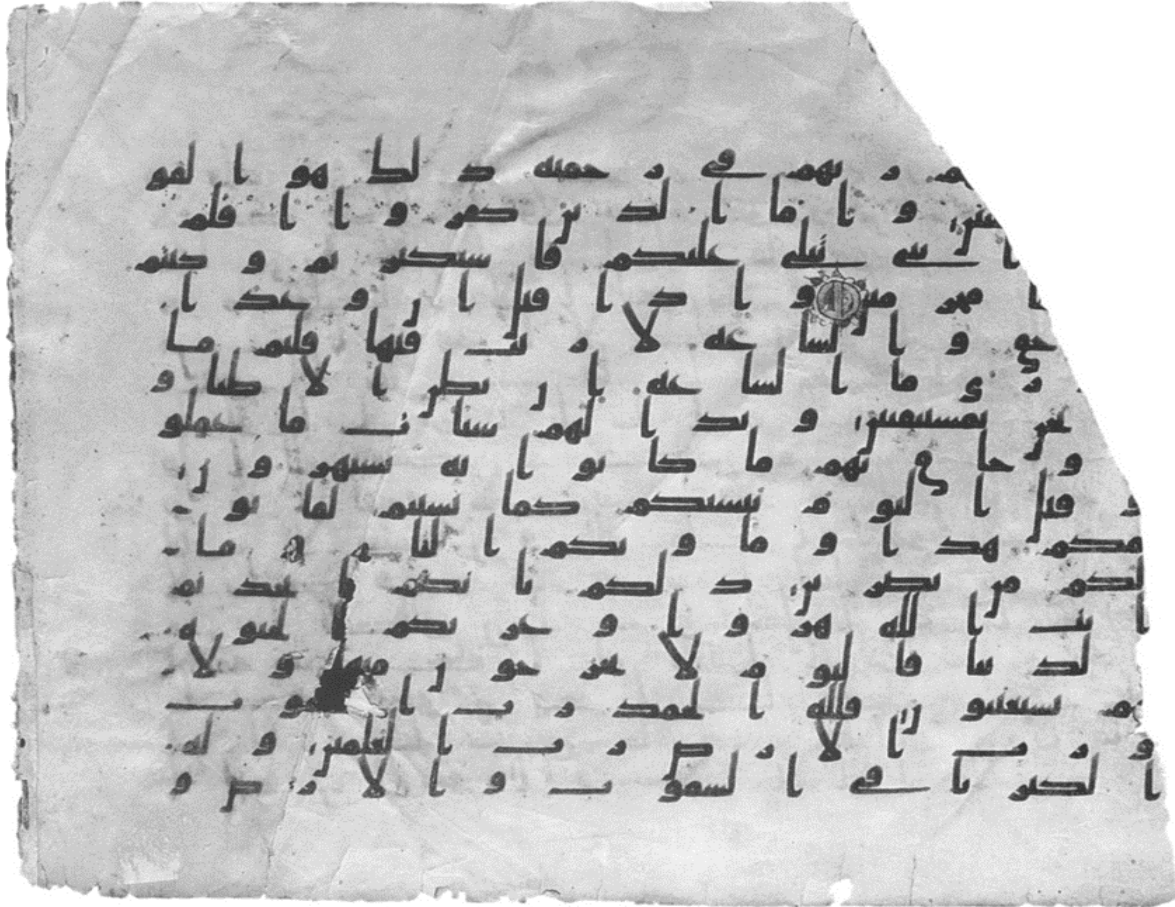 هم ربهم في رحمته ذلك هو الفو
ين واما الذين كفروا افلم
ايتي تتلى عليكم فاستكبرتم وكنتم
ما مجرمين واذا قيل ان وعد ا
حق والساعه لا ريب فيها قلتم ما
ندري ما الساعه ان نظن الا ظنا و
نحن بمستيقنين وبدا لهم سيات ما عملو
وحاق بهم ما كانوا به يستهزون
وقيل اليوم ننسيكم كما نسيتم لقا يو
مكم هذا وماويكم النار وما
لكم من نصرين ذلكم بانكم اتخذتم
ايت الله هزوا وغرتكم الحيوه
الدنيا فاليوم لا يخرجون منها ولا
هم يستعتبون فلله الحمد رب السموت
ورب الارض رب العلمين وله
الكبريا في السموت والارض و